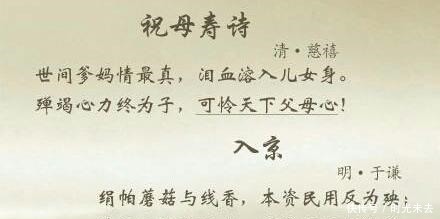 祝母寿诗
清·慈禧
世间爹妈情最真，泪血溶入儿女身。
殚竭心力终为子，可怜天下父母心！
入京
明·于谦
绢帕蘑菇与线香，本资民用反为殃；
快传号/明光未去